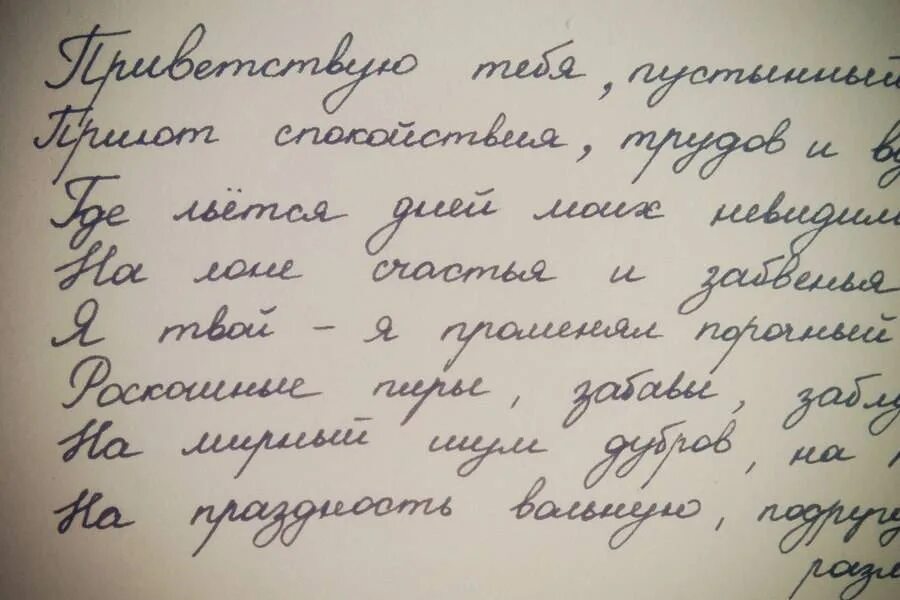 Приветствую тебя, пустынный
Приют спокойствия, трудов и вд
Где льётся дней моих невидим
На лоне счастья и забвенья
Я твой - я променял порочный
Роскошные пиры, забавы, заблу
На мирный шум дубров, на
На праздность вольную, подругу
разм